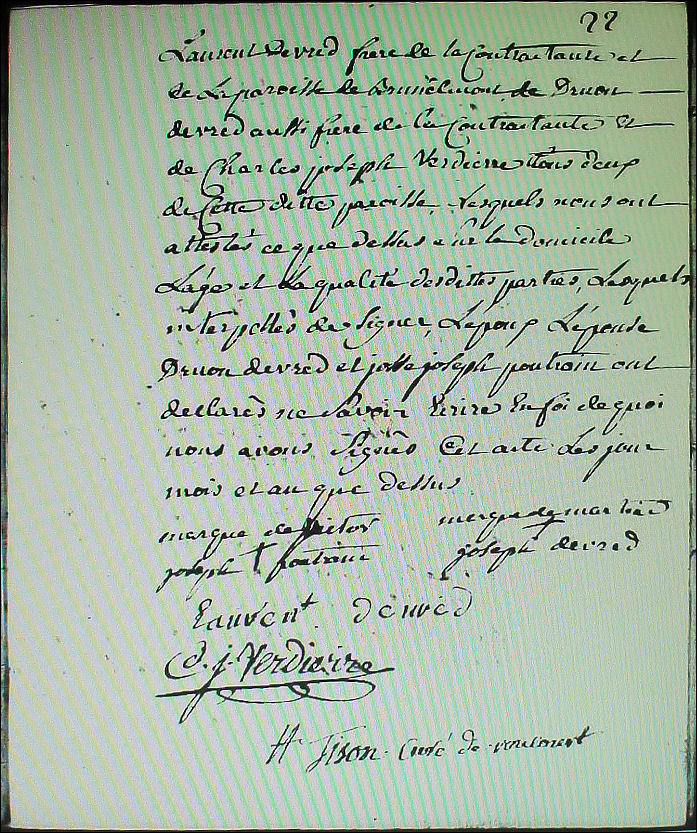 22
Laurent devred frere de la Contractante et
de La paroisse de de Druon
devred aussi frere de la Contractante Et
de Charles joseph Verdierre tous deux
de Cette ditte paroisse, Lesquels nous ont
attestés ce que dessus sur le domicile
L'age et La qualité desdittes parties, Lesquels
interpellés de Signer, L'epoux L'epouse
Druon devred et josse joseph poutrain ont
declarés ne Savoir Ecrire En foi de quoi
nous avons Signés Cet acte Les jour
mois et an que dessus
marque de victor marque de marie
joseph poutrain joseph devred
Lauvent devred
C. j. Verdierre
H Tison Curé de